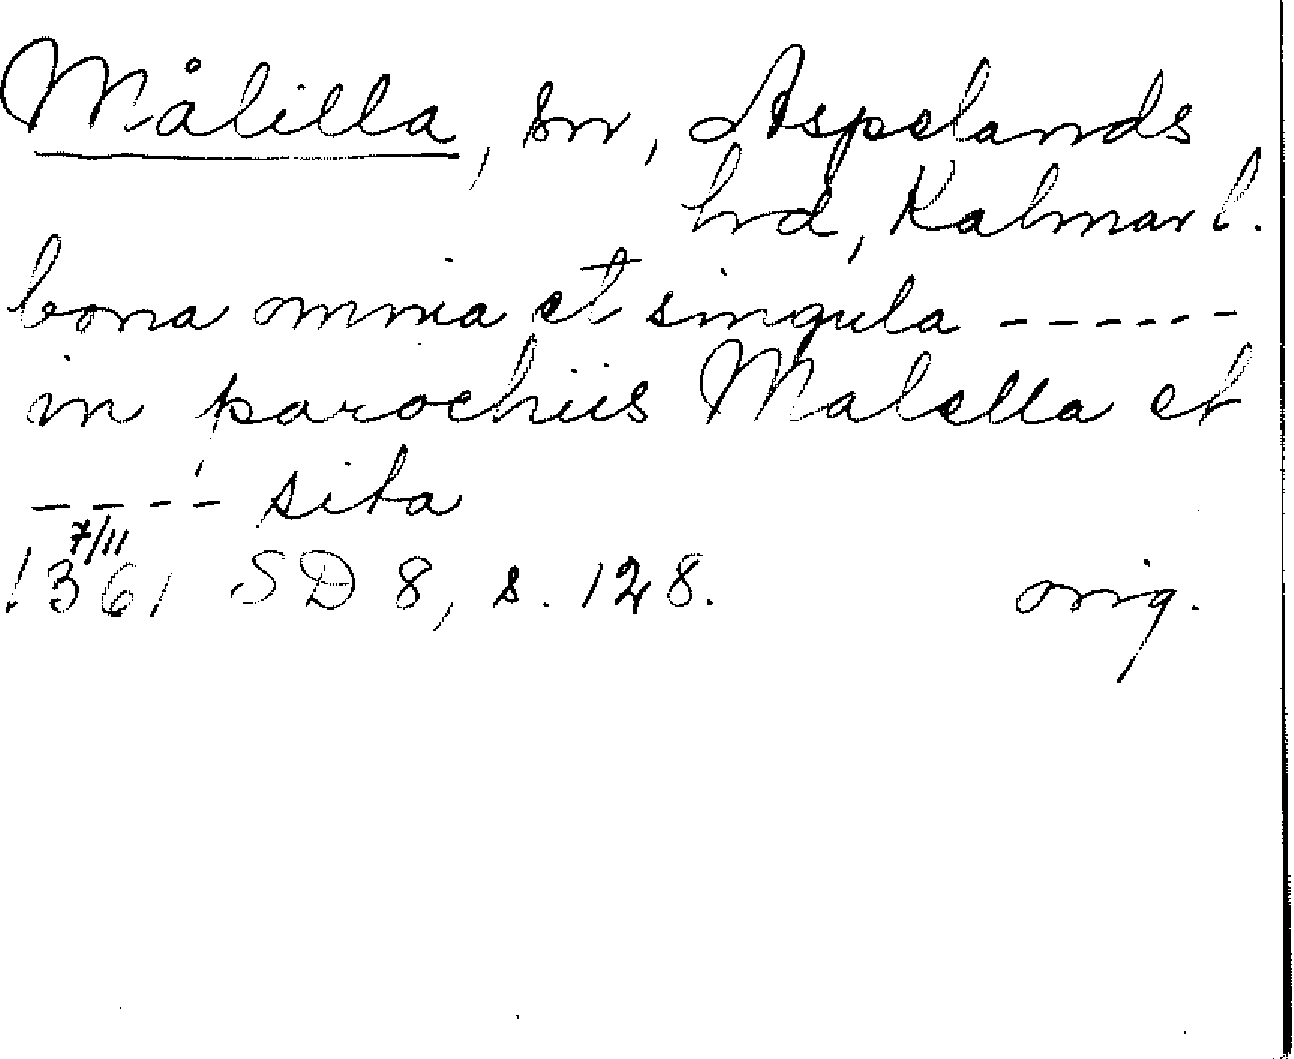 Målilla, sn, Aspelands
hd, Kalmar l.
bona omnia et singula ------
in parochiis Malella et
---- sita
7/11
1361 SD 8, s. 128.
orig.